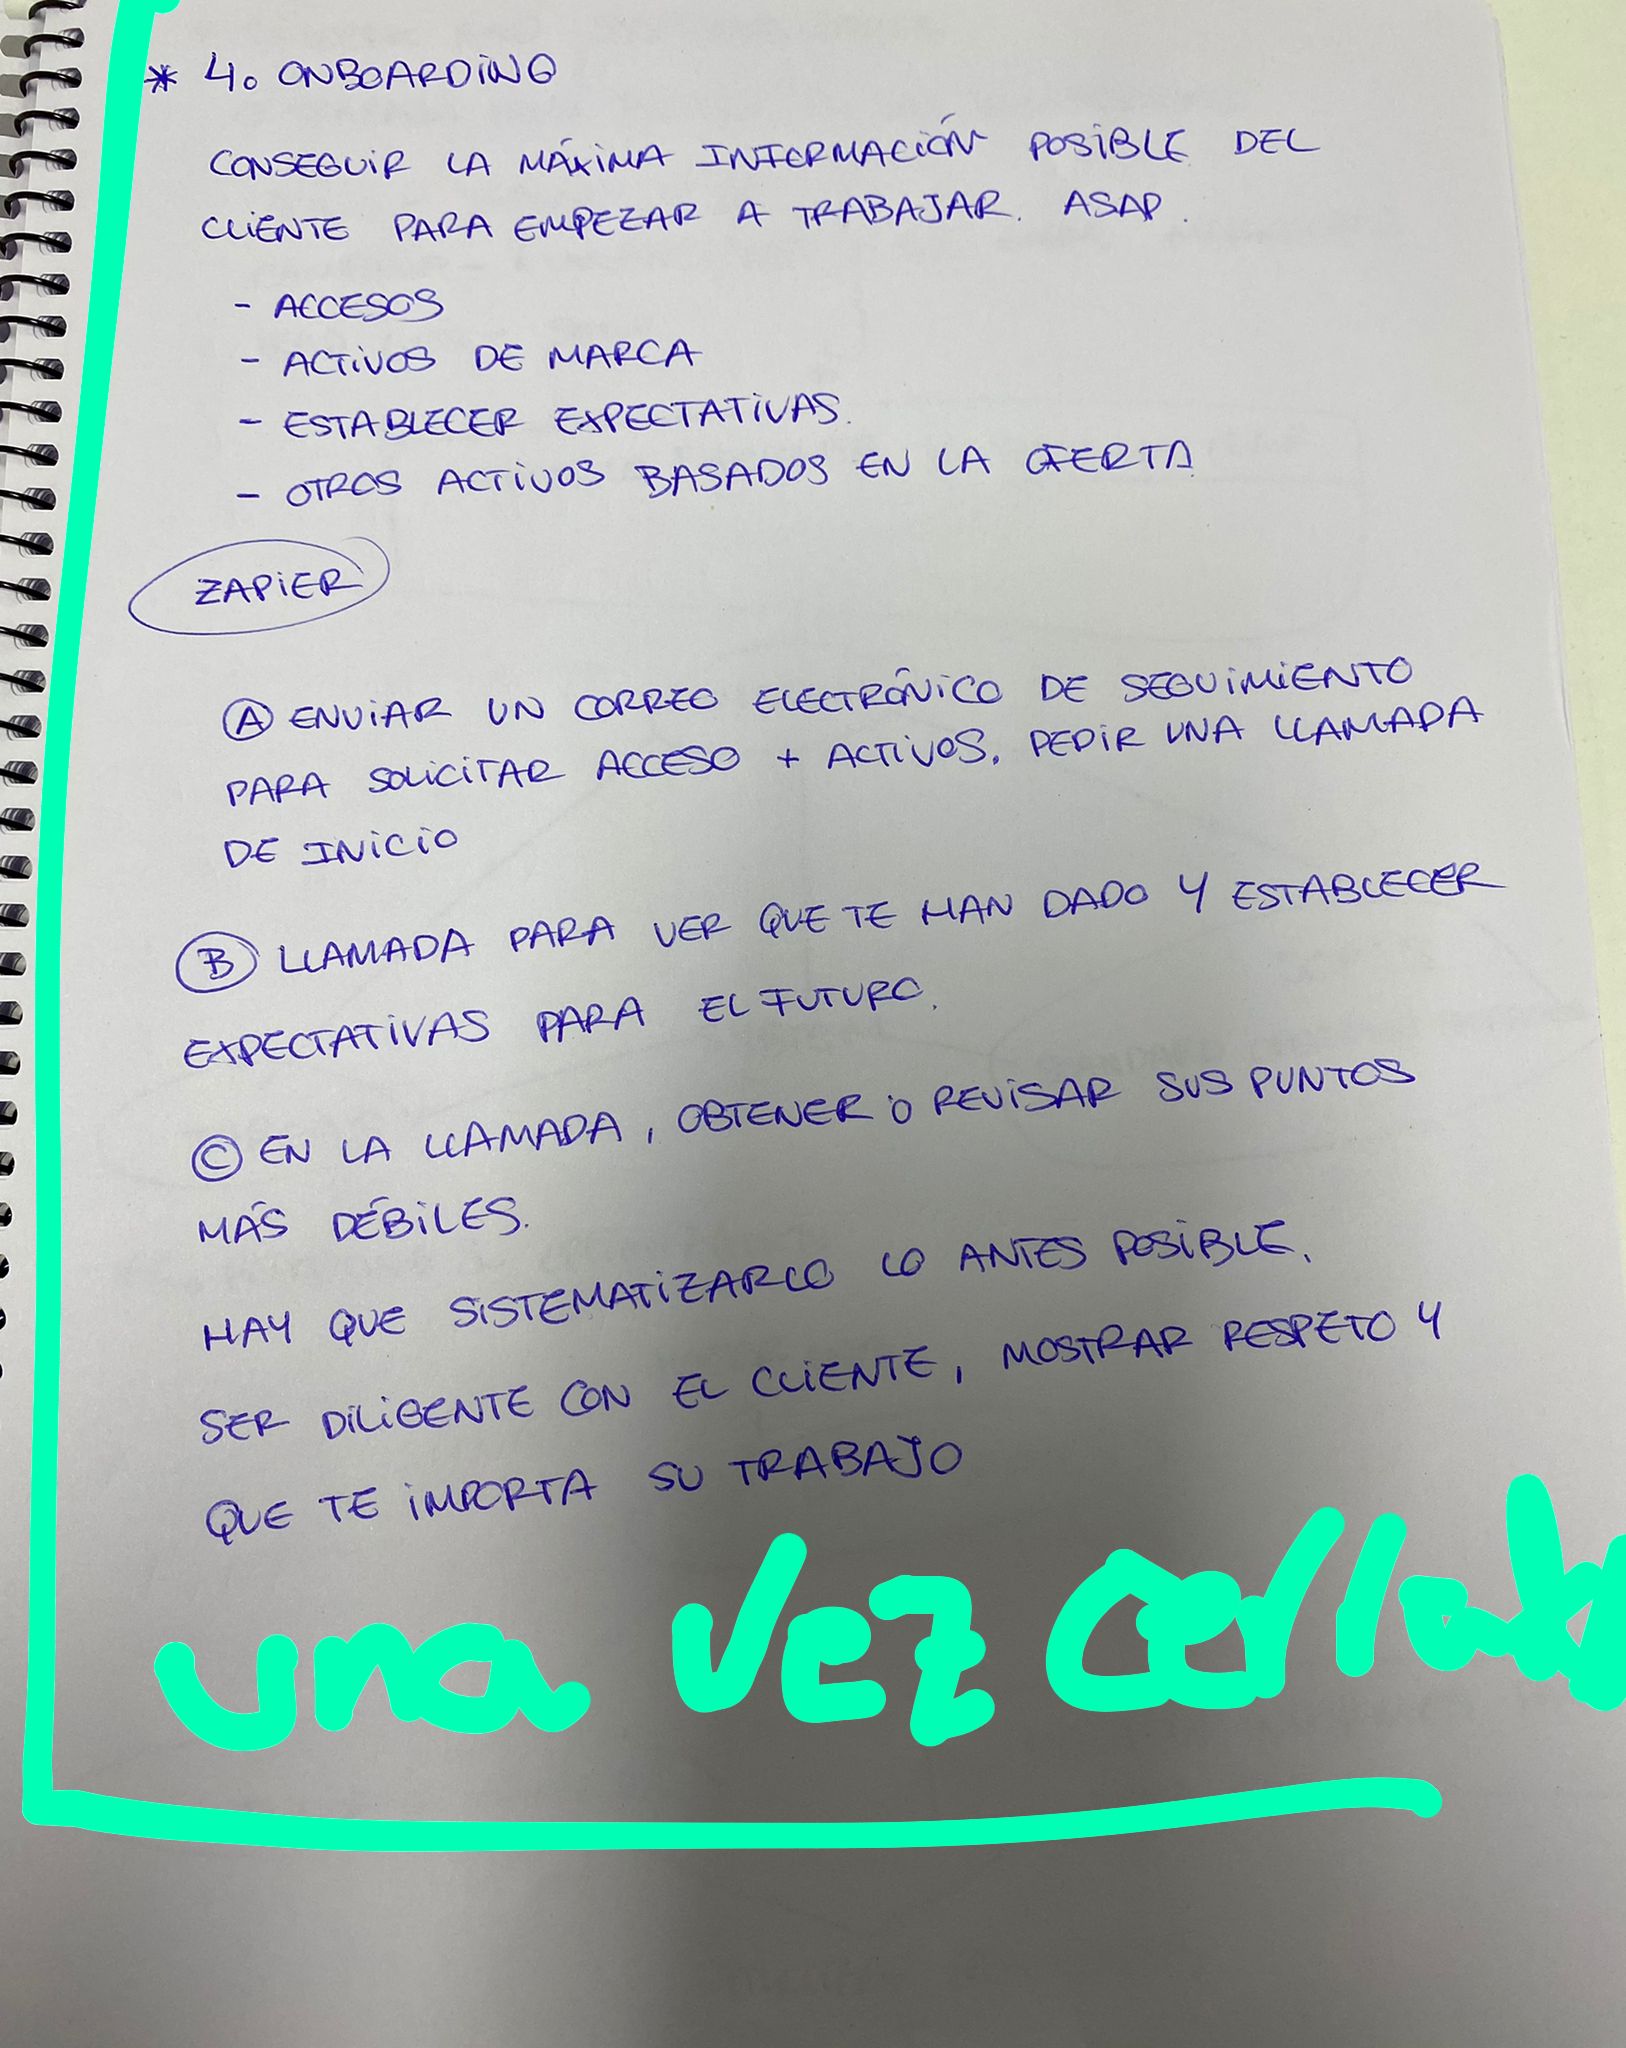 * 4. ONBOARDING
CONSEGUIR LA MÁXIMA INFORMACIÓN POSIBLE DEL
CLIENTE PARA EMPEZAR A TRABAJAR. ASAP.
- ACCESOS
- ACTIVOS DE MARCA
- ESTABLECER EXPECTATIVAS.
- OTROS ACTIVOS BASADOS EN LA OFERTA
ZAPIER
A ENVIAR UN CORREO ELECTRÓNICO DE SEGUIMIENTO
PARA SOLICITAR ACCESO + ACTIVOS, PEDIR UNA LLAMADA
DE INICIO
B LLAMADA PARA VER QUE TE HAN DADO Y ESTABLECER
EXPECTATIVAS PARA EL FUTURO.
C EN LA LLAMADA, OBTENER O REVISAR SUS PUNTOS
MÁS DÉBILES.
HAY QUE SISTEMATIZARLO LO ANTES POSIBLE,
SER DILIGENTE CON EL CLIENTE, MOSTRAR RESPETO Y
QUE TE IMPORTA SU TRABAJO
una vez